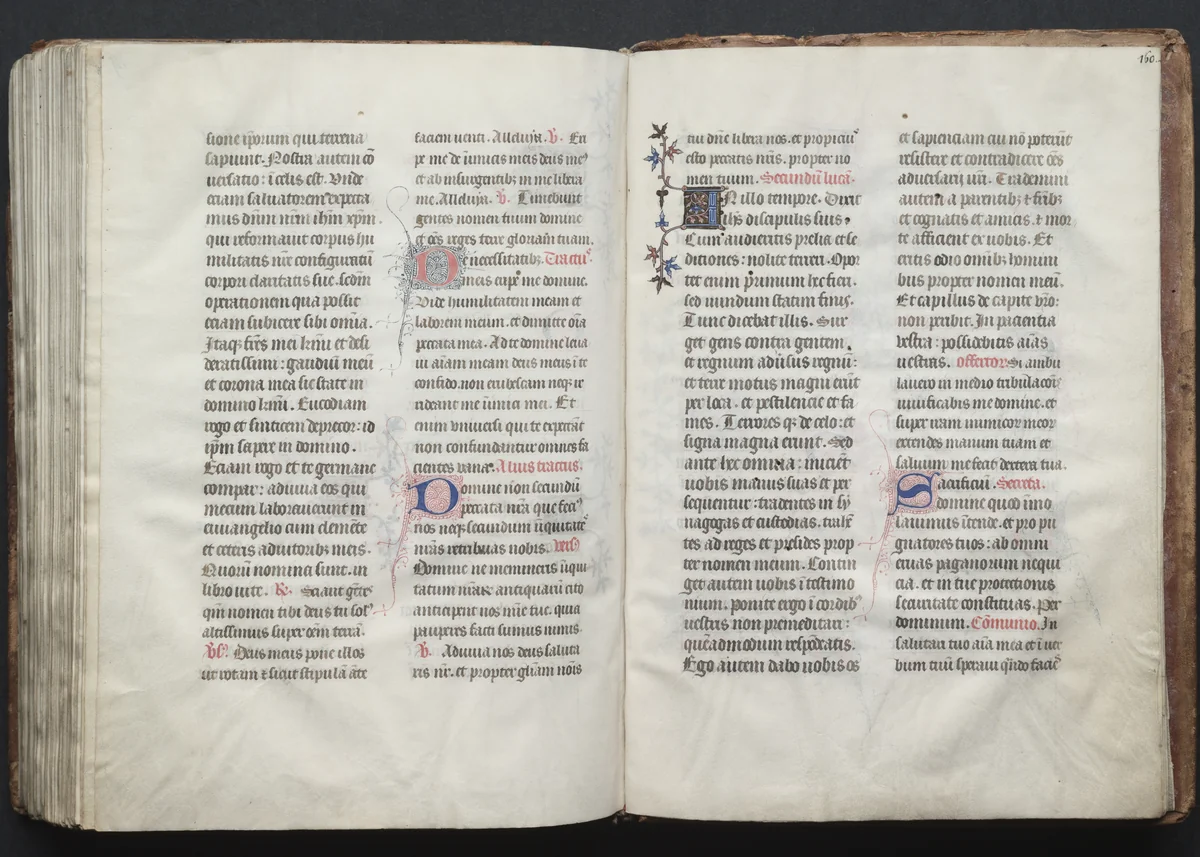 sione ip̄orum qui terrena
sapiunt. Nostra autem cō
uersatio: ī celis est. Vnde
eciam saluatorem expecta
mus dn̄m nr̄m ih̄m xp̄m.
qui reformauit corpus hu
militatis nr̄e configuratū
corpori claritatis sue. scdm̄
operationem qua possit
eciam subicere sibi om̄ia.
Itaq; fr̄es mei kmi et desi
deratissimi: gaudiū meū
et corona mea sic state in
domino kmi. Eucodiam
rogo et sinticem deprecor: id
ip̄m sapere in domino.
Eciam rogo et te germane
compar: adiuua eos qui
mecum laborauerunt in
euuangelio cum clemēte
et ceteris adiutorib; meis.
Quorū nomina sunt. in
libro uite. R̄. Sciant gētes
qm̄ nomen tibi deus tu sol⁹
altissimus super oēm terrā.
v̄s̄. Deus meus pone illos
ut rotam ⁊ sicut stipulā āte
faciem uenti. Alleluya. v̄. Eri
pe me de īimicis meis deus me⁹
et ab insurgentib; in me libera
me. Alleluya. v̄. Timebunt
gentes nomen tuum domine
et oēs reges terre gloriam tuam.
De necessitatib; Tractꝰ.
meis eripe me domine.
Vide humilitatem meam et
laborem meum. et dimitte oīa
peccata mea. Ad te domine leua
ui aīam meam deus meus ī te
confido. non erubescam neq; ir
rideant me īimici mei. Et
enim vniuersi qui te expectāt
non confundantur omnes fa
cientes vana. Alius tractus.
Domine non secundū
peccata nr̄a que feci⁹
nos neq; secundum iniquitatē
nr̄as retribuas nobis. vers⁹
Domine ne memineris īiqui
tatum nr̄arꝝ antiquarū cito
anticipent nos mīe tue. quia
pauperes facti sumus nimis.
v̄. Adiuua nos deus saluta
ris nr̄. et propter gl̄iam nōis
160.
tui dn̄e libera nos. et propiciuˢ
esto peccatis nr̄is. propter no
men tuum. Secundū lucā.
In illo tempore. Dixit
ih̄s discipulis suis.
Cum audieritis prelia et se
ditiones: nolite terreri. Opor
tet enim primum hec fieri.
sed nundum statim finis.
Tunc dicebat illis. Sur
get gens contra gentem.
et regnum aduersus regnū:
et terre motus magni erūt
per loca. et pestilencie et fa
mes. Terrores q; de celo: et
signa magna erunt. Sed
ante hec omnia: inicient
uobis manus suas et per
sequentur: tradentes in sy
nagogas et custodias. trahē
tes ad reges et presides prop
ter nomen meum. Contin
get autem uobis ī testimo
nium. Ponite ergo ī cordib⁹
uestris non premeditari:
quēadmodum respōdeatis.
Ego autem dabo uobis os
et sapienciam cui nō poterūt
resistere et contradicere oēs
aduersarij ur̄i. Trademini
autem a parentib; ⁊ frīb;
et cognatis et amicis. ⁊ mor
te afficient ex uobis. Et
eritis odio omīb; homini
bus propter nomen meū.
Et capillus de capite vr̄o:
non peribit. In pacientia
vestra: possidebitis aīas
uestras. offertor. Si ambu
lauero in medio tribulacōis
uiuificabis me domine. et
super iram inimicor meor
extendes manum tuam et
saluum me fecit dextera tua.
Sacrificiū. Secreta.
domine quod īmo
lauimus ītende. et pro pu
gnatores tuos: ab omni
eruas paganorum nequi
cia. et in tue protectionis
securitate constituas. Per
dominum. Cōmunio. In
salutari tuo aīa mea et ī ver
bum tuū speraui qn̄do facieˢ